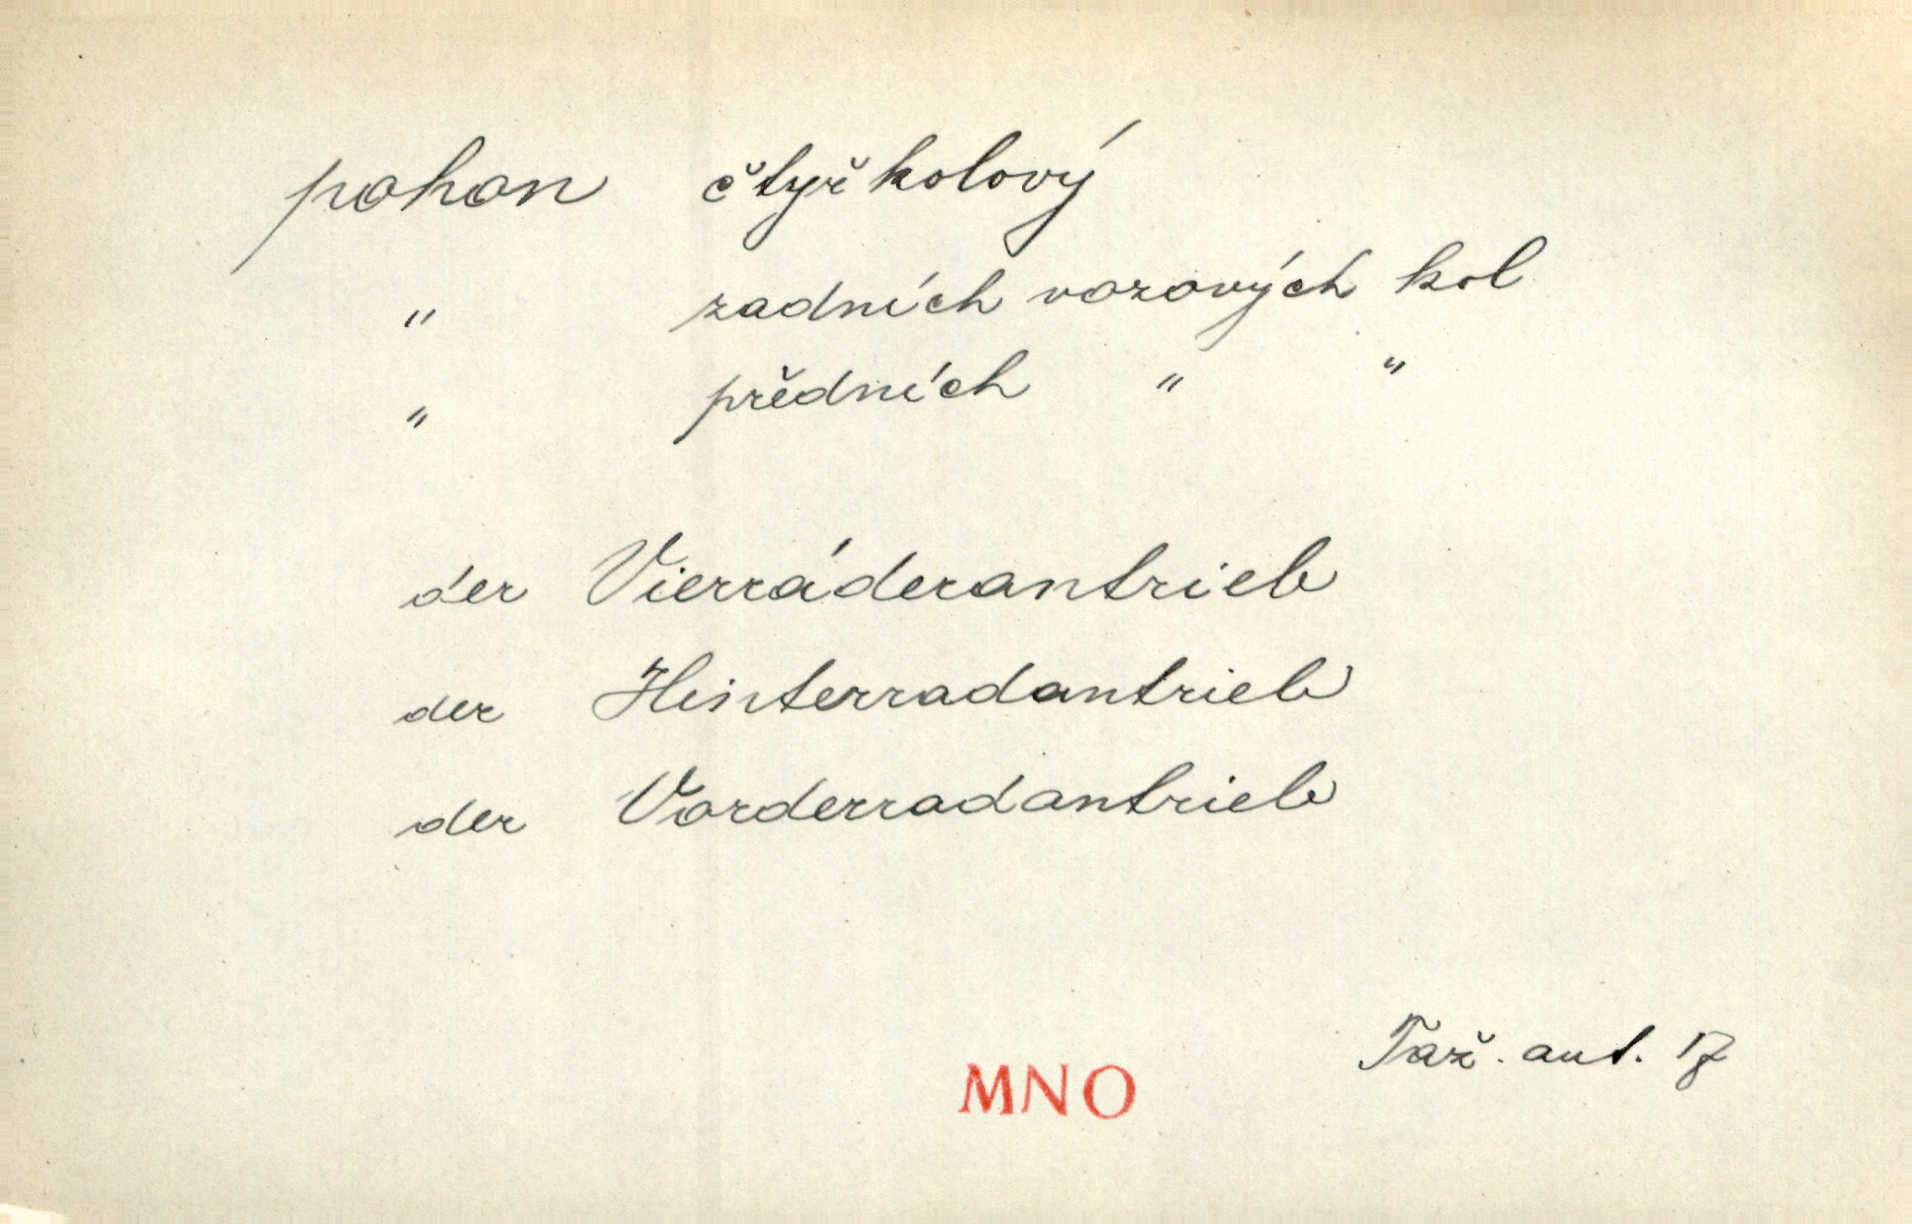 pohon čtyřkolový
" zadních vozových kol
" předních " "
der Vierráderantrieb
der Hinterradantrieb
der Vorderradantrieb
Taž. aut. 17
MNO